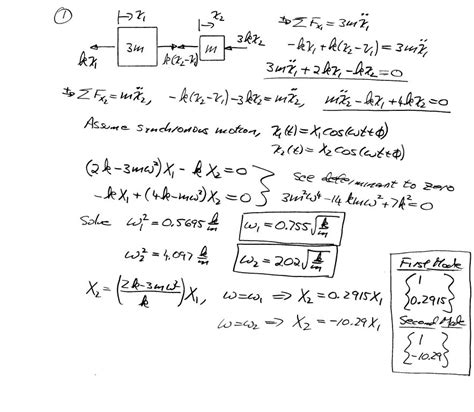 ① → x₁ → x₂
kx₁ 3m k(x₂-x₁) m 3kx₂
ΣFx₁ = 3mẍ₁
-kx₁+k(x₂-x₁) = 3mẍ₁
3mẍ₁+2kx₁-kx₂=0
ΣFx₂ = mẍ₂, -k(x₂-x₁)-3kx₂=mẍ₂, mẍ₂-kx₁+4kx₂=0
Assume synchronous motion, x₁(t) = X₁cos(ωt+ϕ)
x₂(t) = X₂cos(ωt+ϕ)
(2k-3mω²)X₁ - kX₂=0
-kX₁+(4k-mω²)X₂=0
set determinant to zero
3m²ω⁴-14kmω²+7k²=0
Solve ω₁²=0.5695 k/m ω₁=0.755√(k/m)
ω₂²=4.097 k/m ω₂=2.02√(k/m)
X₂=((2k-3mω²)/k)X₁, ω=ω₁ ⇒ X₂=0.2915X₁
ω=ω₂ ⇒ X₂=-10.29X₁
First Mode
{1
0.2915}
Second Mode
{1
-10.29}